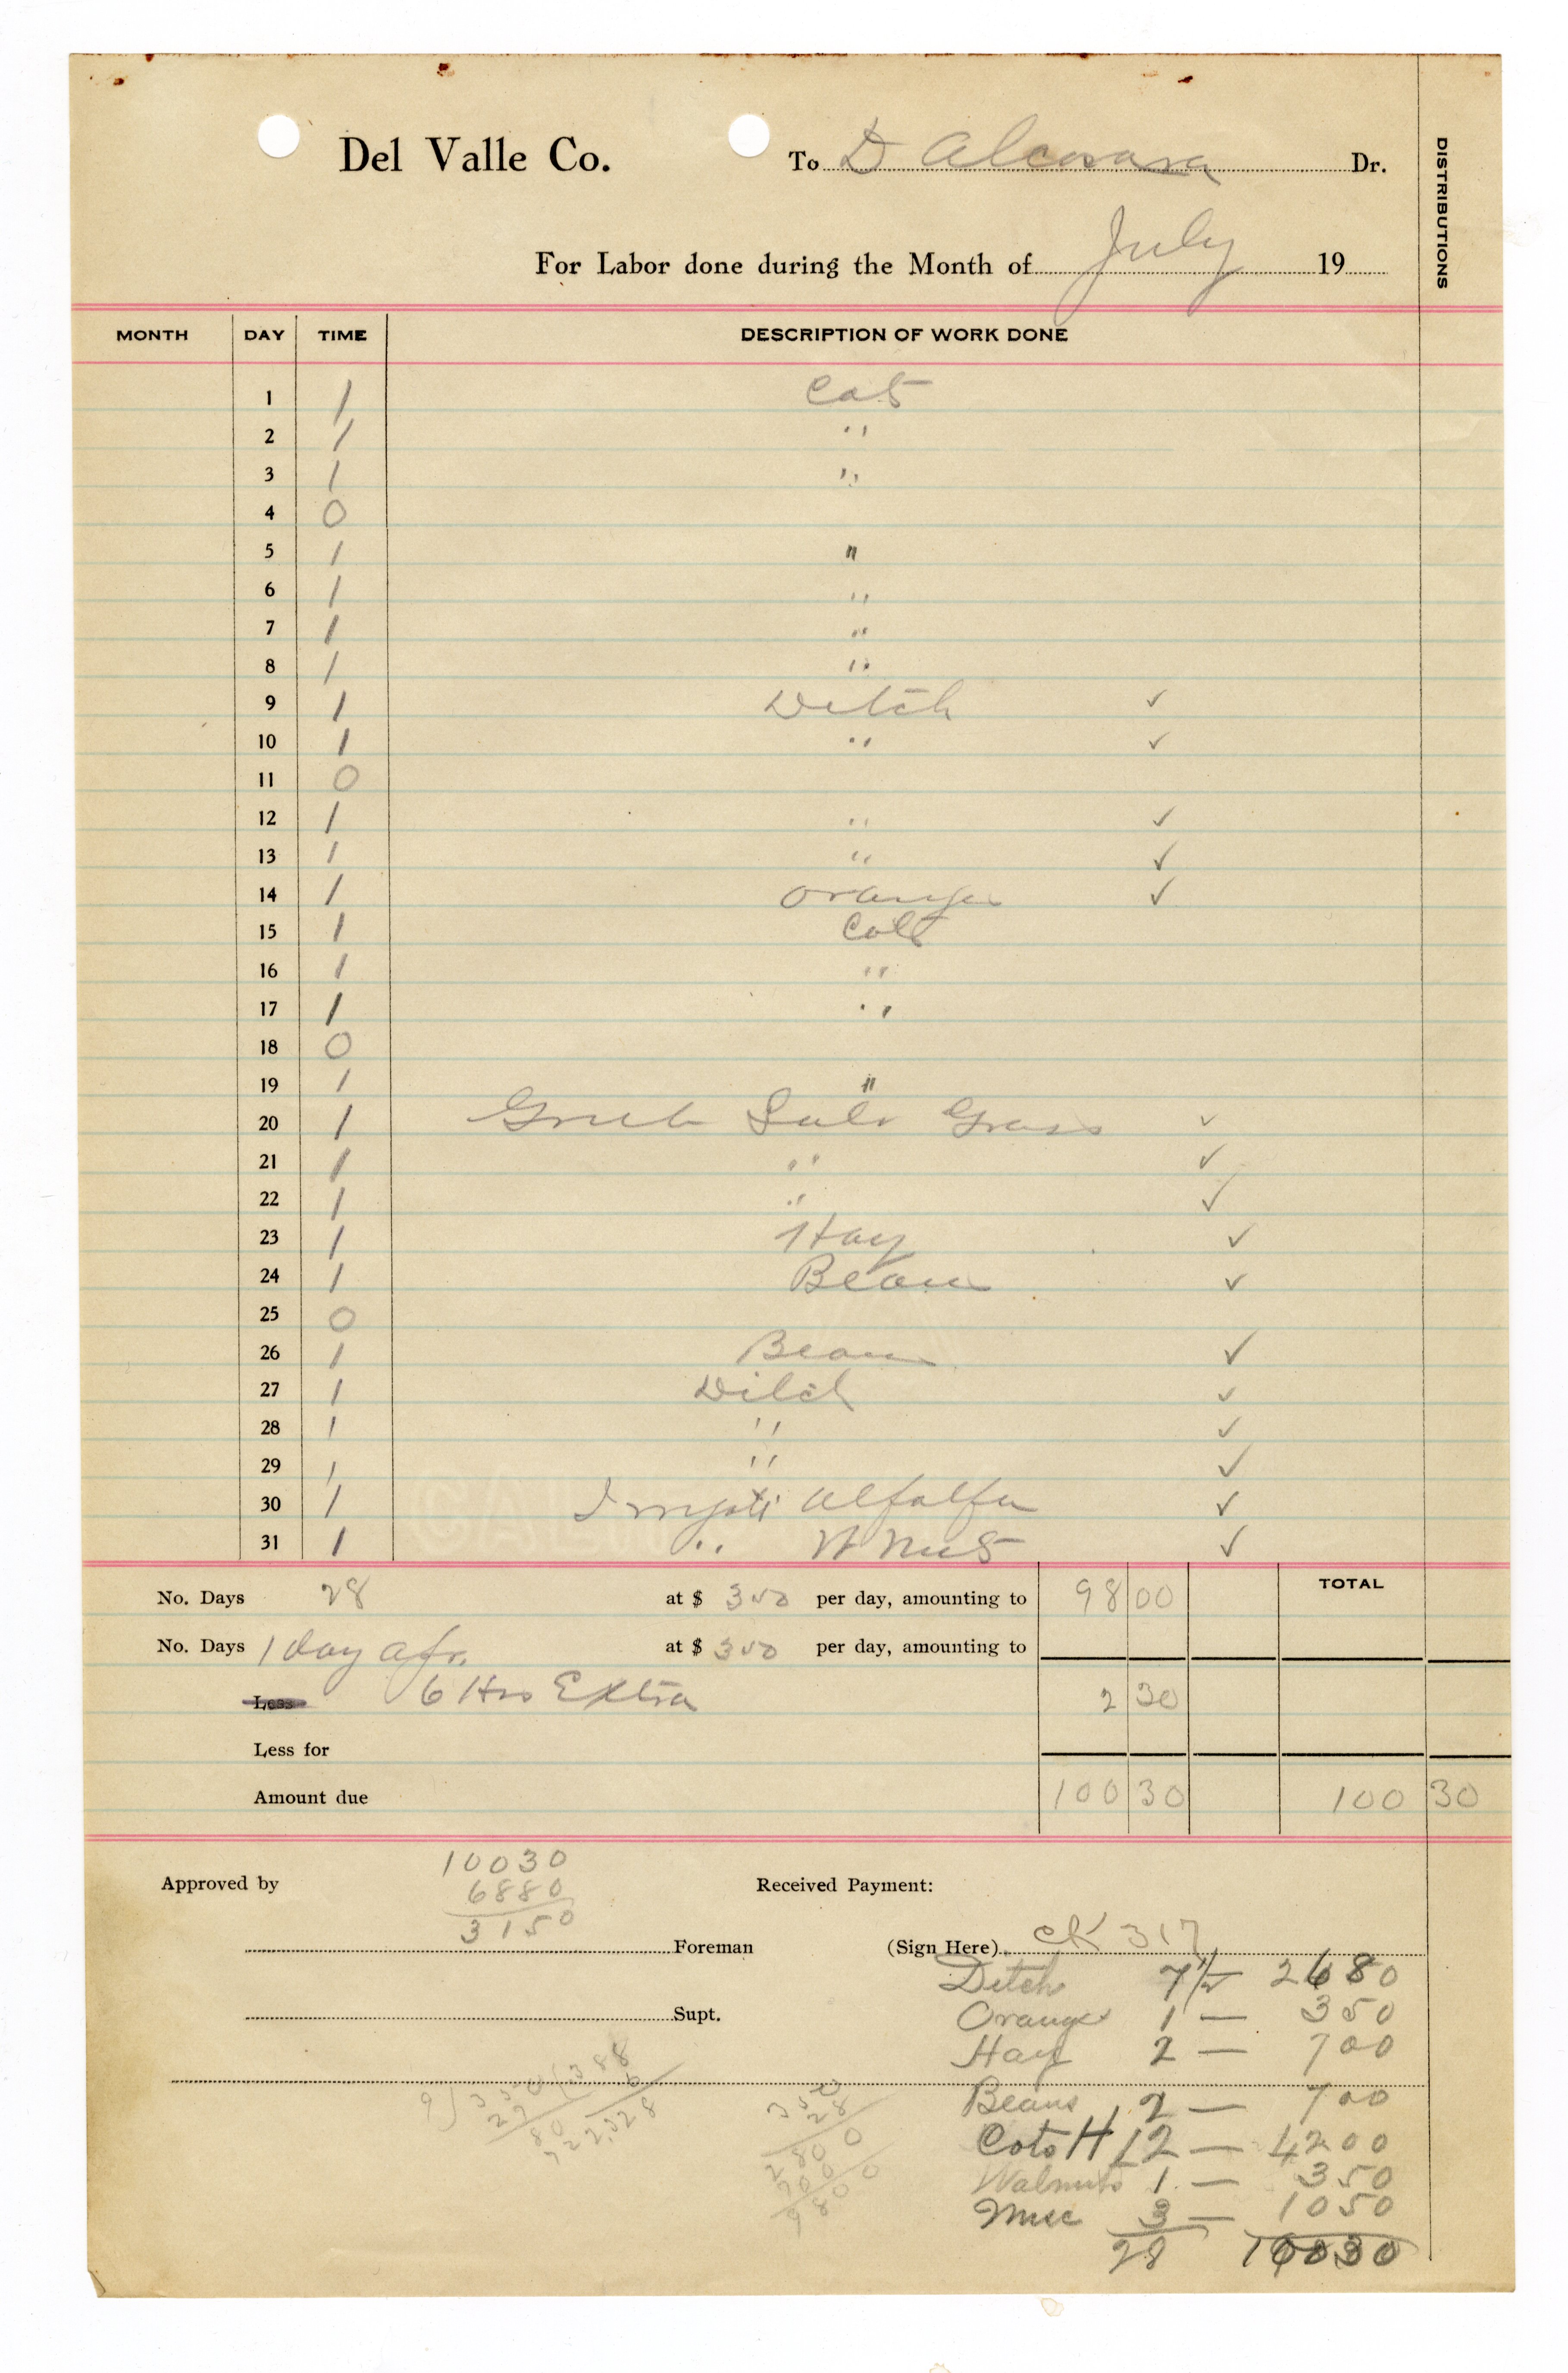 Del Valle Co. To D Alcorara Dr.
DISTRIBUTIONS
For Labor done during the Month of July 19
MONTH DAY TIME DESCRIPTION OF WORK DONE
1 1 Cots
2 1 "
3 1 "
4 0
5 1 "
6 1 "
7 1 "
8 1 "
9 1 Ditch ✓
10 1 " ✓
11 0
12 1 " ✓
13 1 " ✓
14 1 Oranges ✓
15 1 Cots
16 1 "
17 1 "
18 0
19 1 "
20 1 Grub Grass ✓
21 1 " ✓
22 1 " ✓
23 1 Hay ✓
24 1 Beans ✓
25 0
26 1 Beans ✓
27 1 Ditch ✓
28 1 " ✓
29 1 " ✓
30 1 Alfalfa ✓
31 1 " W Nuts ✓
TOTAL
No. Days 28 at $ 350 per day, amounting to 98 00
No. Days 1 day afr. at $ 350 per day, amounting to
Less 6 Hrs Extra 2 30
Less for
Amount due 100 30 100 30
10030
Approved by 6880 Received Payment:
3150
Foreman (Sign Here) CK 317
Ditch 7 1/2 — 2680
Supt. Oranges 1 — 350
Hay 2 — 700
9)350(388
27
80
72
6
2328
350
28
2800
700
9800
Beans 2 — 700
Cots H 12 — 4200
Walnuts 1 — 350
Misc 3 — 1050
28 10030